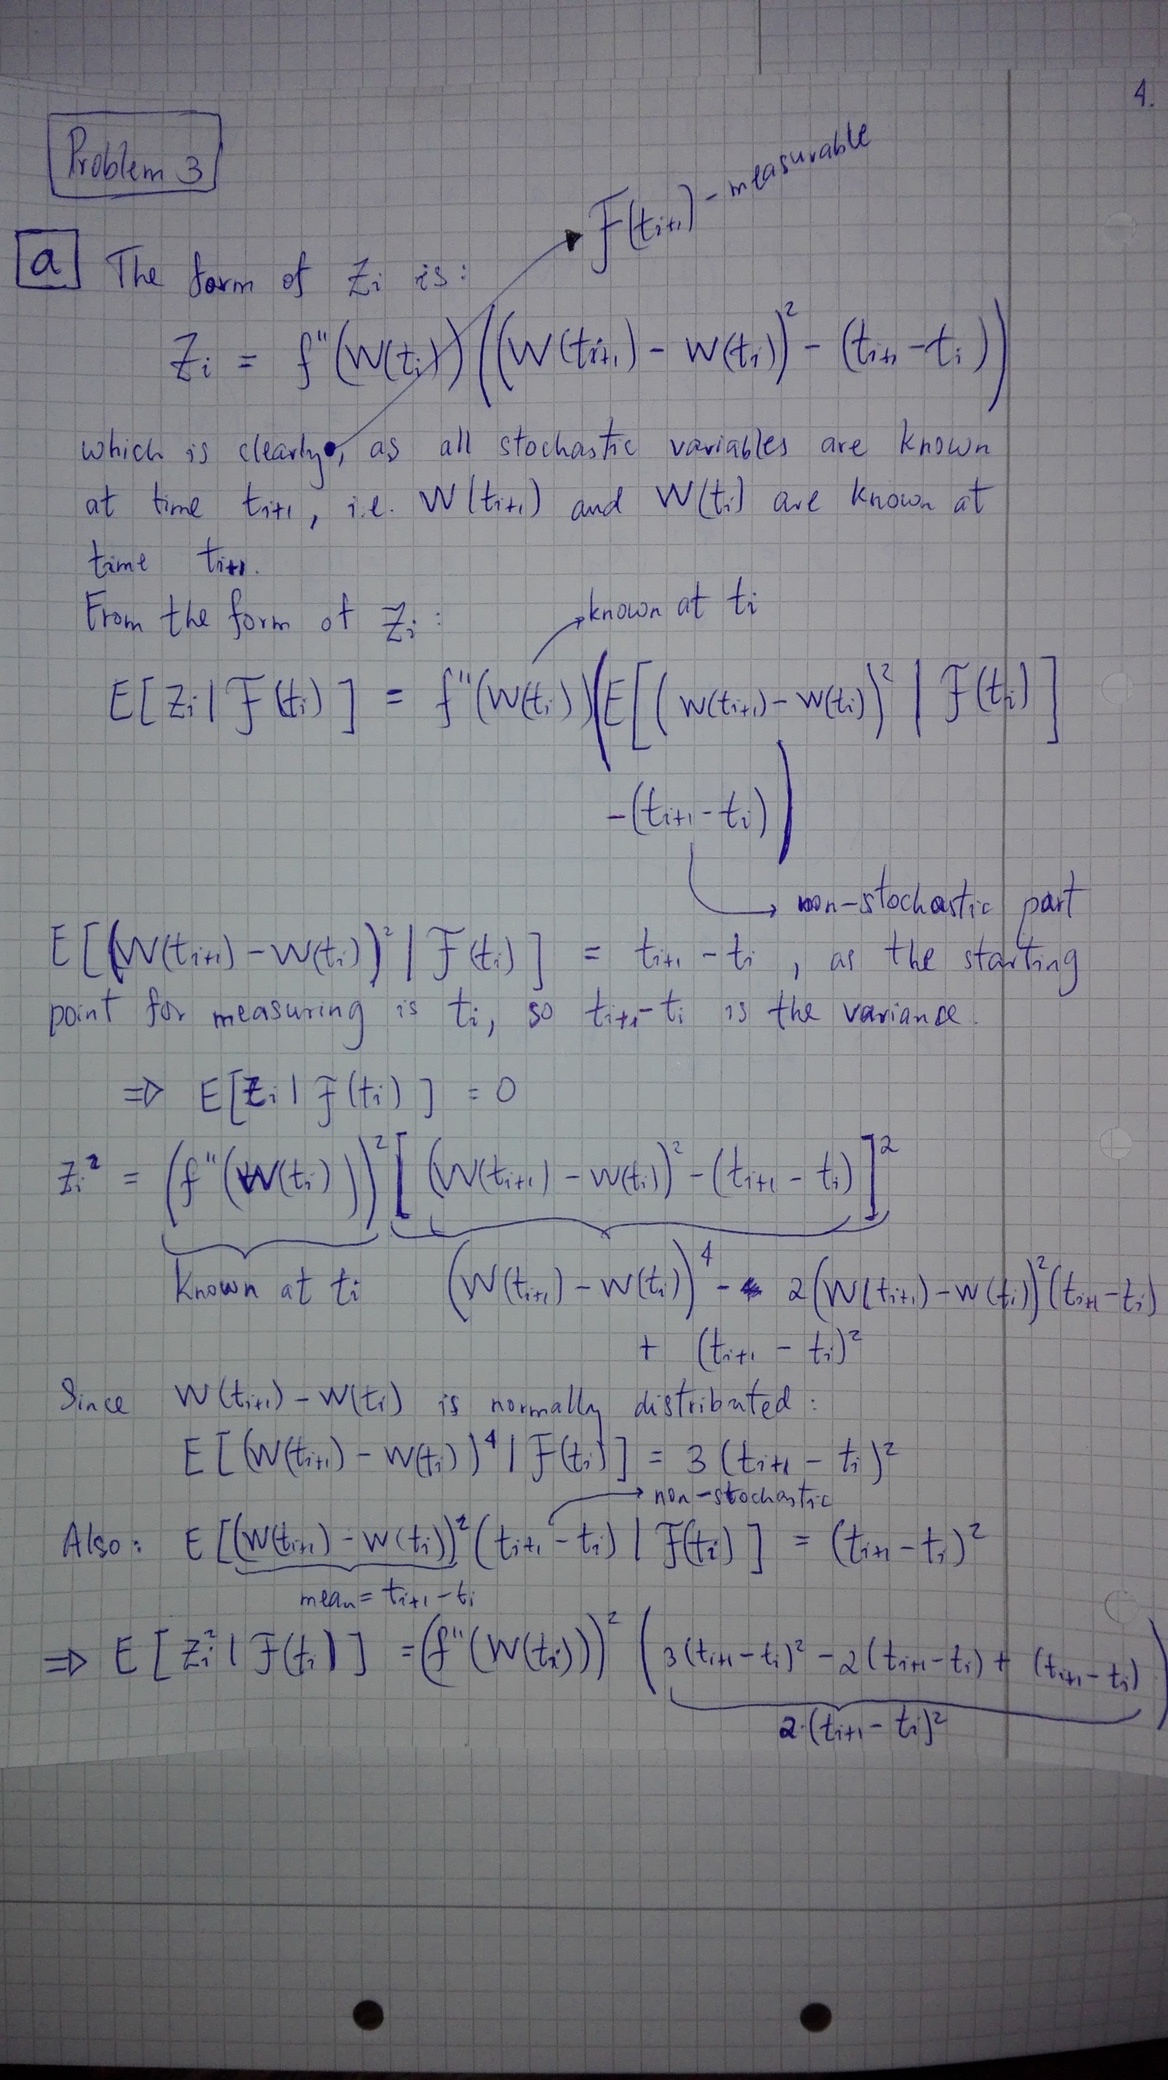 4.
Problem 3
F(tᵢ₊₁) - measurable
a The form of Zᵢ is:
Zᵢ = f"(W(tᵢ))((W(tᵢ₊₁) - W(tᵢ))² - (tᵢ₊₁ - tᵢ))
which is clearly, as all stochastic variables are known
at time tᵢ₊₁, i.e. W(tᵢ₊₁) and W(tᵢ) are known at
time tᵢ₊₁.
From the form of Zᵢ:
known at tᵢ
E[Zᵢ | F(tᵢ)] = f"(W(tᵢ))(E[(W(tᵢ₊₁) - W(tᵢ))² | F(tᵢ)]
-(tᵢ₊₁ - tᵢ))
non-stochastic part
E[(W(tᵢ₊₁) - W(tᵢ))² | F(tᵢ)] = tᵢ₊₁ - tᵢ, as the starting
point for measuring is tᵢ, so tᵢ₊₁ - tᵢ is the variance.
⇒ E[Zᵢ | F(tᵢ)] = 0
Zᵢ² = (f"(W(tᵢ)))² [(W(tᵢ₊₁) - W(tᵢ))² - (tᵢ₊₁ - tᵢ)]²
known at tᵢ (W(tᵢ₊₁) - W(tᵢ))⁴ - 2(W(tᵢ₊₁) - W(tᵢ))²(tᵢ₊₁ - tᵢ)
+ (tᵢ₊₁ - tᵢ)²
Since W(tᵢ₊₁) - W(tᵢ) is normally distributed:
E[(W(tᵢ₊₁) - W(tᵢ))⁴ | F(tᵢ)] = 3(tᵢ₊₁ - tᵢ)²
non-stochastic
Also: E[(W(tᵢ₊₁) - W(tᵢ))²(tᵢ₊₁ - tᵢ) | F(tᵢ)] = (tᵢ₊₁ - tᵢ)²
mean = tᵢ₊₁ - tᵢ
⇒ E[Zᵢ² | F(tᵢ)] = (f"(W(tᵢ)))² (3(tᵢ₊₁ - tᵢ)² - 2(tᵢ₊₁ - tᵢ) + (tᵢ₊₁ - tᵢ))
2·(tᵢ₊₁ - tᵢ)²